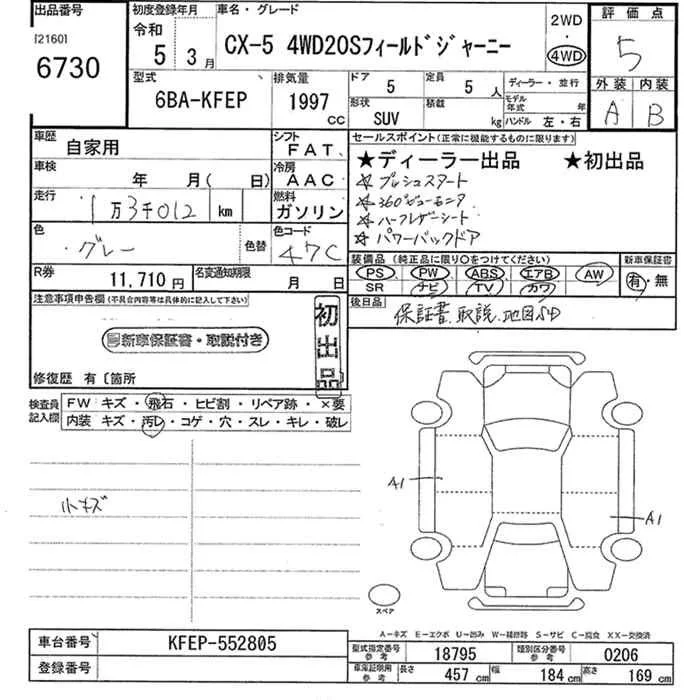 出品番号
[2160]
6730
初度登録年月
令和
5 3月
車名・グレード
CX-5 4WD20Sフィールドジャーニー
2WD
・
4WD
評価点
5
外装 内装
A B
型式
6BA-KFEP
排気量
1997
cc
ドア
5
定員
5 人
ディーラー・並行
形状
SUV
積載
kg
モデル年式
年
ハンドル 左・右
車歴
自家用
シフト
FAT
車検
年 月( 日)
冷房
AAC
走行
1万3千012 km
燃料
ガソリン
色
グレー
色替
色コード
47C
R券
11,710円
名変通知期限
月 日
セールスポイント(正常に機能するものに限ります)
★ディーラー出品 ★初出品
☆プッシュスタート
☆360°ビューモニタ
☆ハーフレザーシート
☆パワーバックドア
装備品(純正品に限り○をつけてください)
PS PW ABS エアB AW
SR ナビ TV カワ
新車保証書
有・無
後日品
保証書、取説、地図SD
注意事項申告欄(不具合内容等は具体的に記入して下さい)
新車保証書・取説付き
初出品
修復歴 有〔箇所
検査員記入欄
FW キズ・飛石・ヒビ割・リペア跡・×要
内装 キズ・汚レ・コゲ・穴・スレ・キレ・破レ
小キズ
A1
A1
スペア
A－キズ E－エクボ U－凹み W－補修跡 S－サビ C－腐食 XX－交換済
車台番号
KFEP-552805
登録番号
型式指定番号
参考
18795
類別区分番号
参考
0206
車庫証明用
参考
長さ 457 cm 幅 184 cm 高さ 169 cm